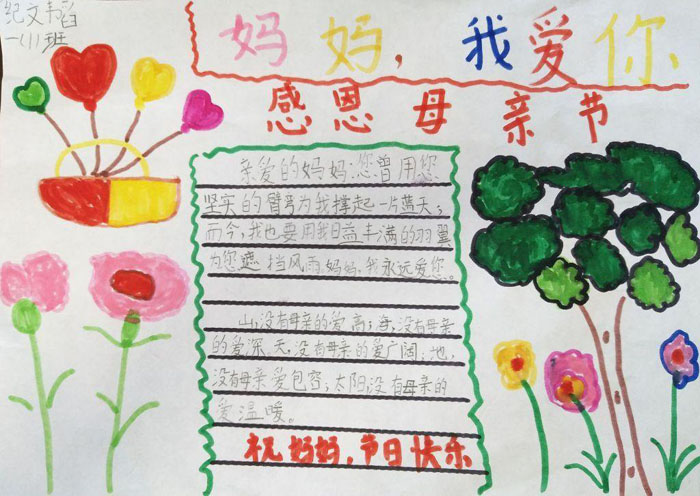 纪文韬
一(1)班
妈妈，我爱你
感恩母亲节
亲爱的妈妈:您曾用您
坚实的臂弯为我撑起一片蓝天；
而今，我也要用我日益丰满的羽翼
为您遮挡风雨.妈妈,我永远爱你。
山,没有母亲的爱高；海,没有母亲
的爱深,天,没有母亲的爱广阔；地,
没有母亲爱包容；太阳,没有母亲的
爱温暖。
祝妈妈,节日快乐